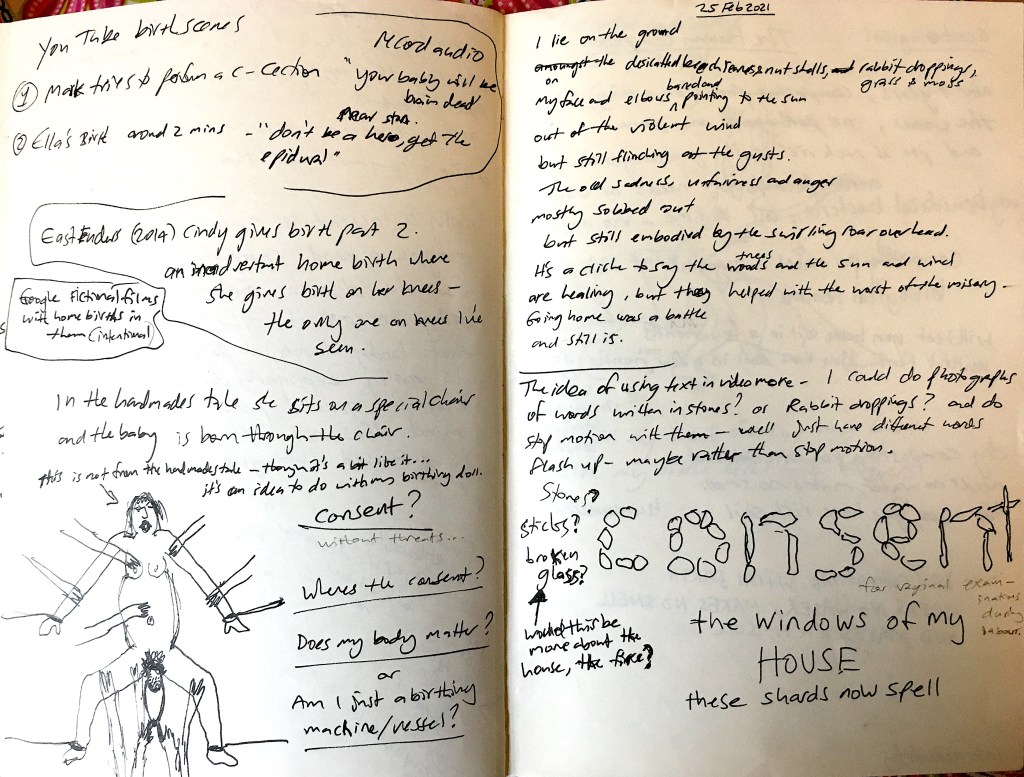 You Tube birth scenes
Mcord audio
① Mark tries to perform a c-cection "your baby will be
brain dead
near star.
② Ella's Birth around 2 mins - "don't be a hero, get the
epidural"
EastEnders (2014) Cindy gives birth part 2.
an inadvertant home birth where
she gives birth on her knees -
the only one on knees I've
seen.
Google fictional films
with home births in
them (intentional)
In the handmades tale she sits on a special chair
and the baby is born through the chair.
this is not from the handmades tale - though it's a bit like it...
it's an idea to do with my birthing doll.
Consent?
without threats...
Wheres the consent?
Does my body matter?
or
Am I just a birthing
machine/vessel?
25 Feb 2021
I lie on the ground
amongst the desicated beech leaves & nut shells, and rabbit droppings,
grass & moss
on
My face and elbows baredom pointing to the sun
out of the violent wind
but still flinching at the gusts.
The old sadness, unfairness and anger
mostly sobbed out
but still embodied by the swirling roar overhead.
It's a cliche to say the woods trees and the sun and wind
are healing, but they helped with the worst of the misery -
Going home was a battle
and still is.
The idea of using text in video more - I could do photographs
of words written in stones? or Rabbit droppings? and do
stop motion with them - well just have different words
flash up - maybe rather than stop motion.
Stones?
sticks?
broken
glass?
consent
for vaginal exam-
inations
during
labour.
would this be
more about the
house, the fire?
the windows of my
HOUSE
these shards now spell